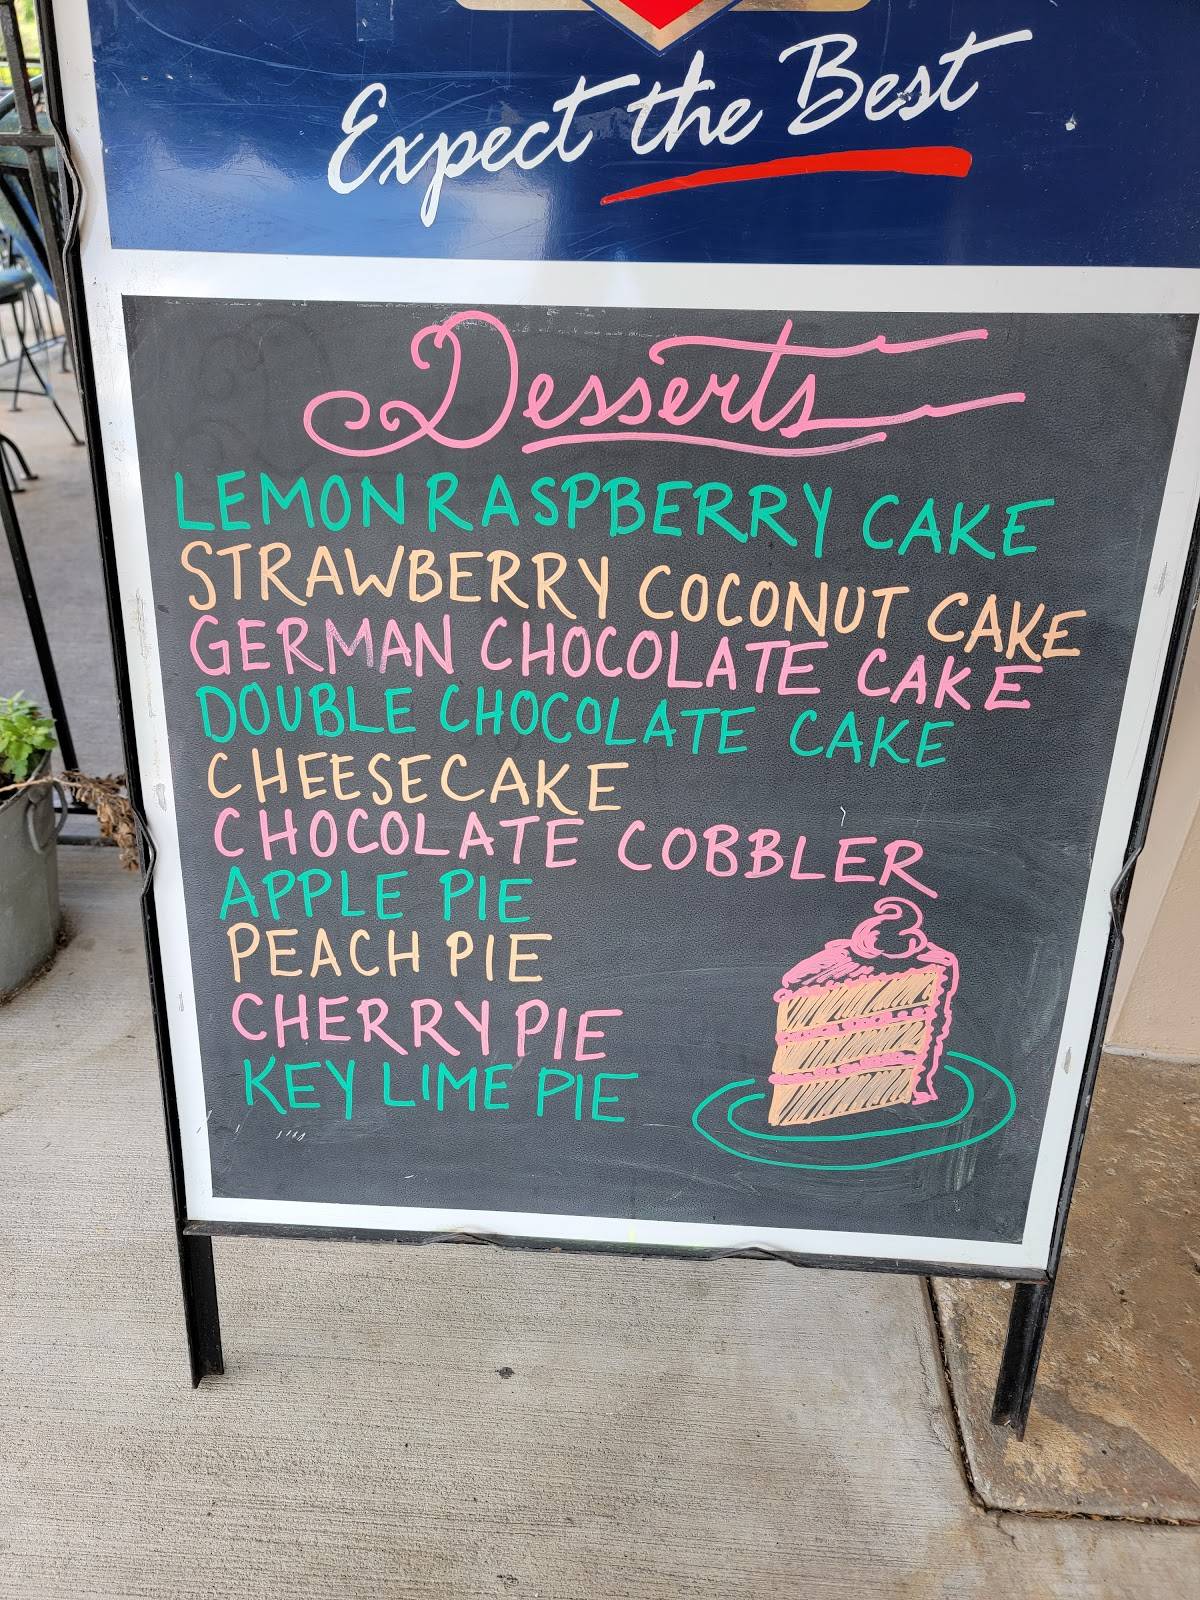 Expect the Best
Desserts
LEMON RASPBERRY CAKE
STRAWBERRY COCONUT CAKE
GERMAN CHOCOLATE CAKE
DOUBLE CHOCOLATE CAKE
CHEESECAKE
CHOCOLATE COBBLER
APPLE PIE
PEACH PIE
CHERRY PIE
KEY LIME PIE